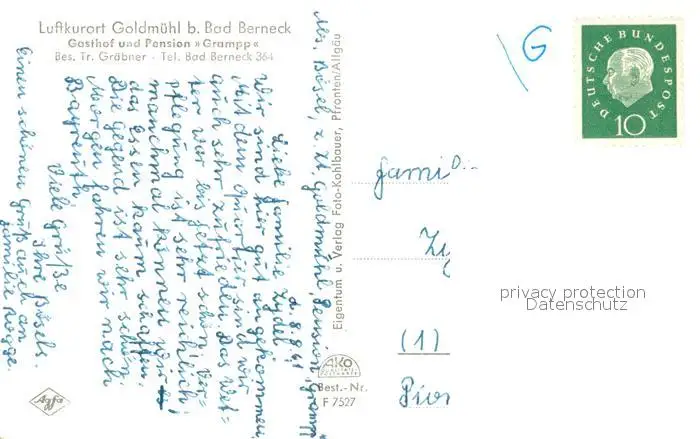 Luftkurort Goldmühl b. Bad Berneck
Gasthof und Pension »Grampp«
Bes. Tr. Gräbner - Tel. Bad Berneck 364
Abs. Bösel, z. Zt. Goldmühl, Pension „Grampp“
d. 8.8.61
Liebe Familie Zydl!
Wir sind hier gut angekommen,
Mit dem Quartier sind wir
auch sehr zufrieden. Das Wet-
ter war bis jetzt schön. Ver-
pflegung ist sehr reichlich,
manchmal können wir
das Essen kaum schaffen.
Die Gegend ist sehr schön.
Morgen fahren wir nach
Bayreuth.
Viele Grüße
Ihre Bösels.
Einen schönen Gruß auch an
Familie Rogge.
Eigentum u. Verlag Foto-Kohlbauer, Pfronten/Allgäu
AKO
Best.-Nr.
F 7527
Agfa
G
DEUTSCHE BUNDESPOST
10
Famili
Zy
(1)
privacy protection
Datenschutz